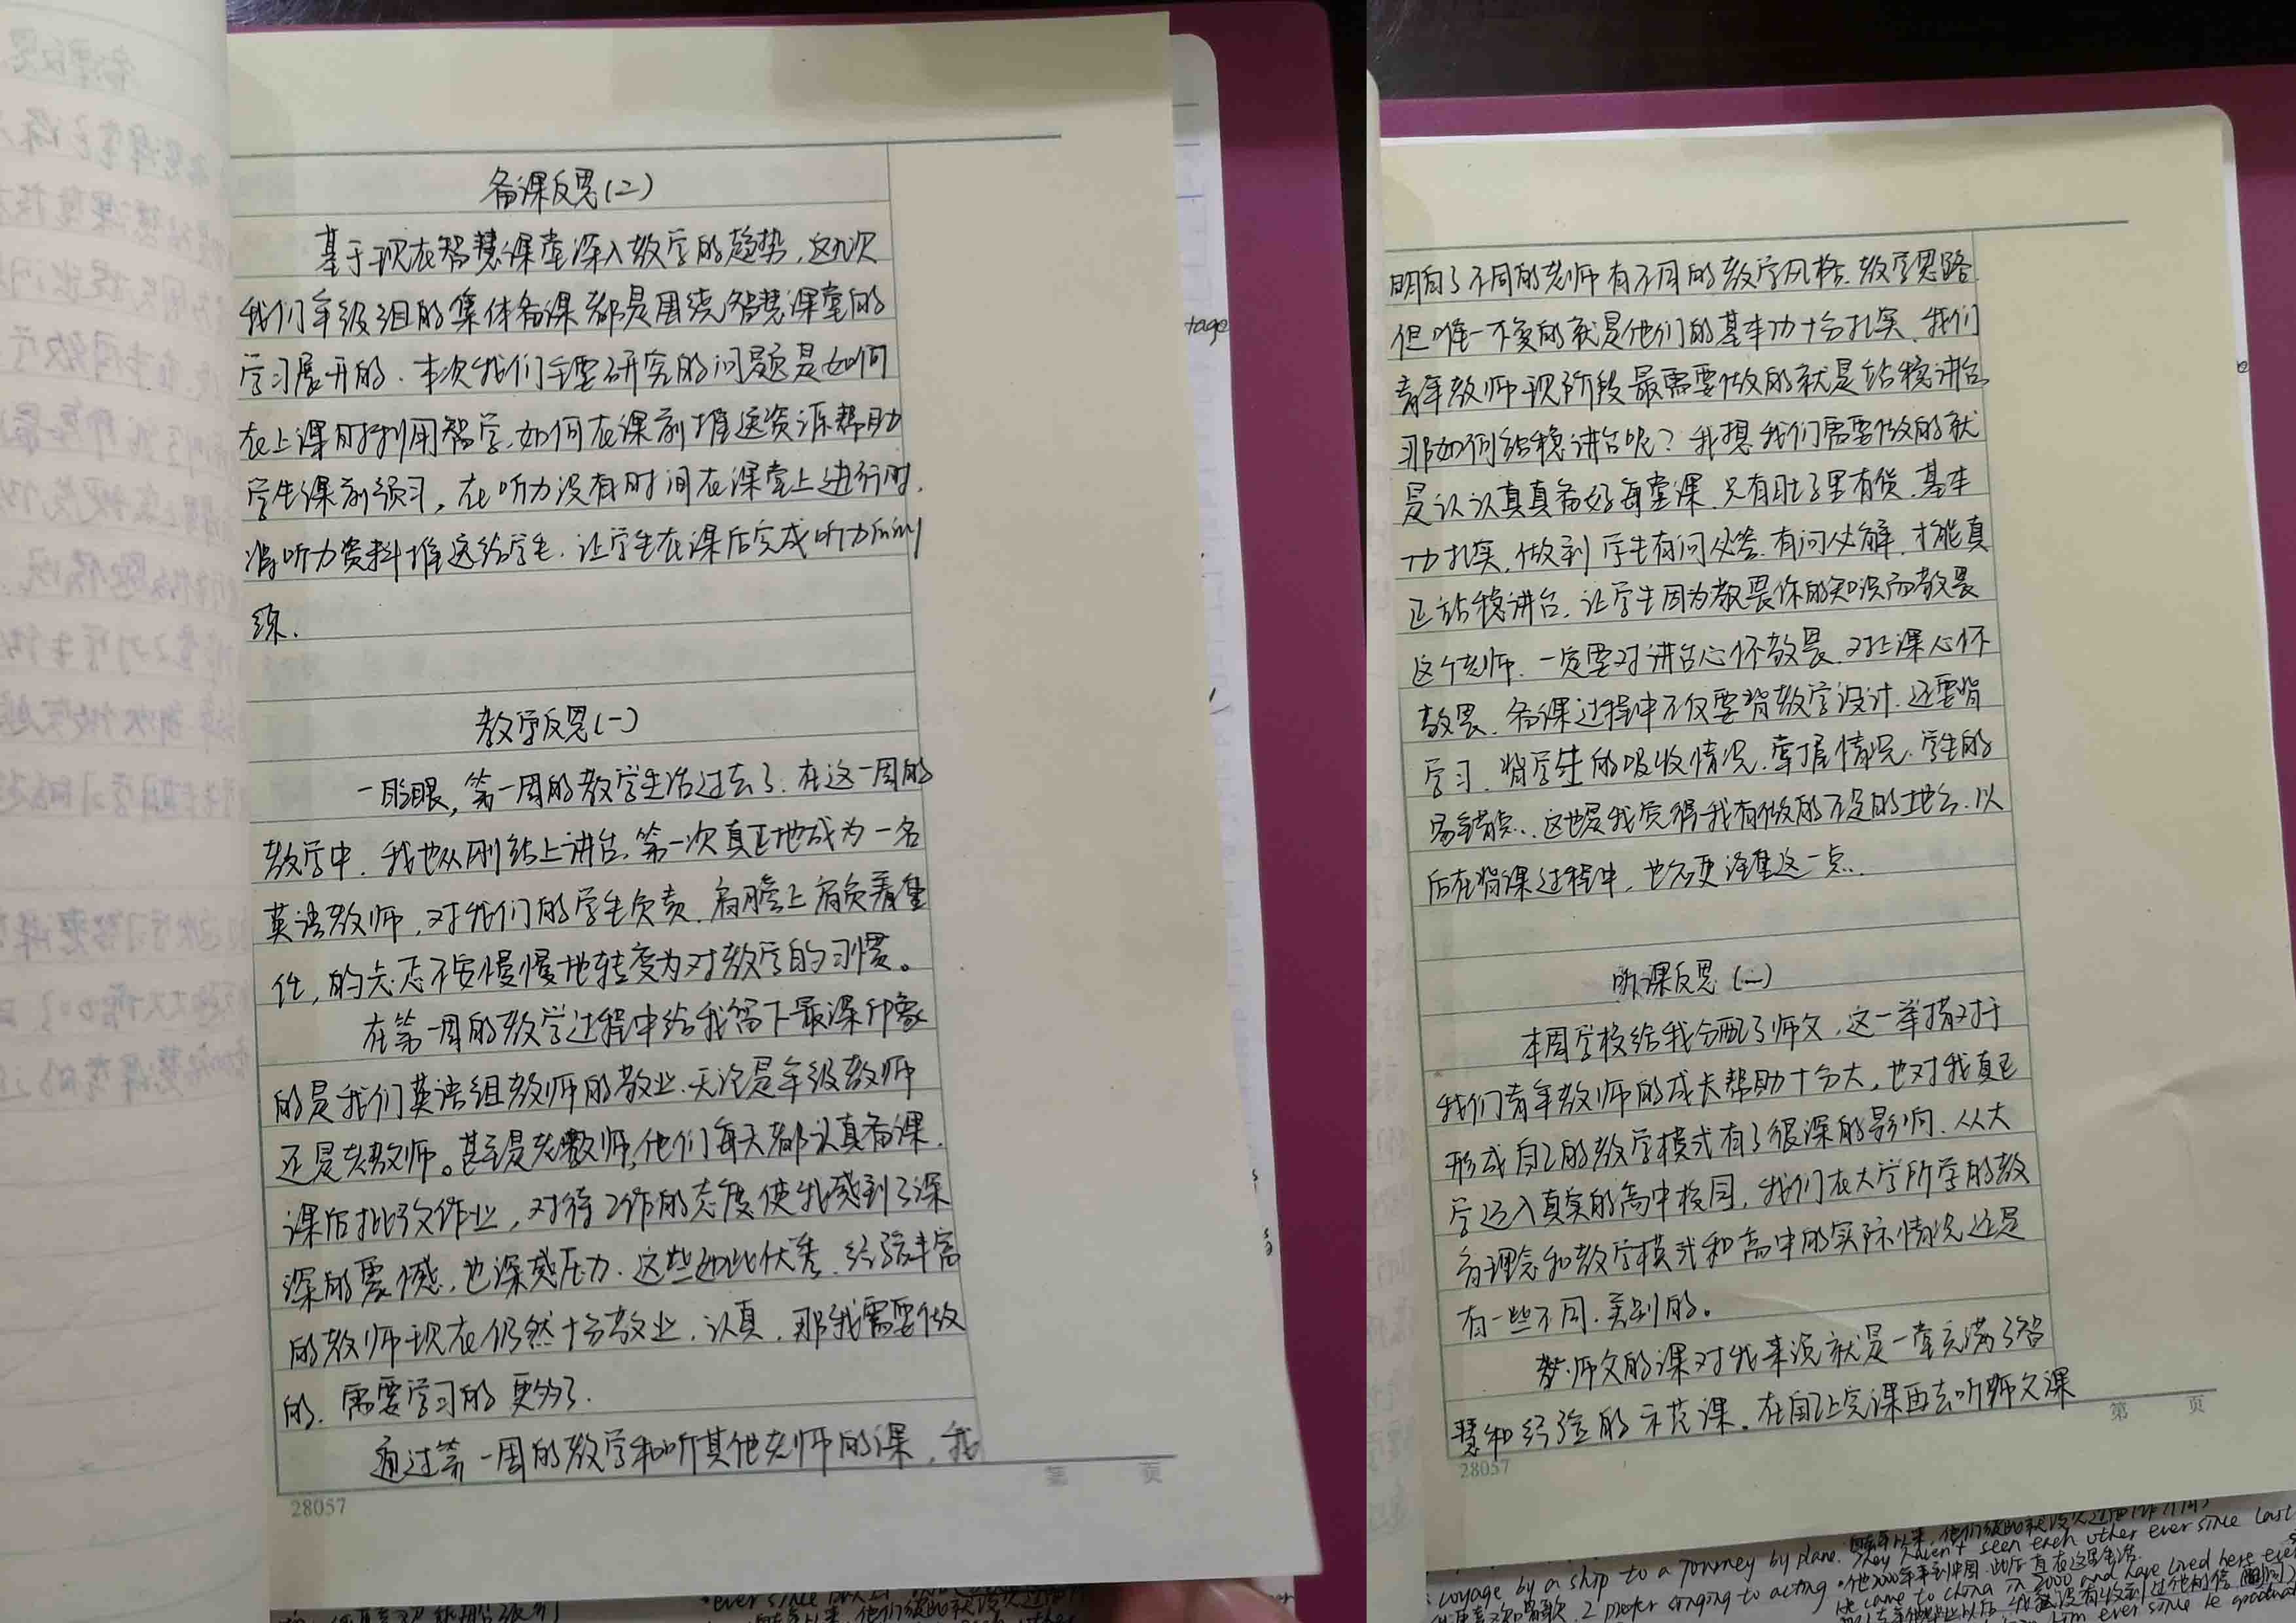 备课反思(二)
基于现在智慧课堂深入教学的趋势,这几次
我们年级组的集体备课都是围绕智慧课堂的
学习展开的.本次我们主要研究的问题是如何
在上课时利用智学,如何在课前推送资源帮助
学生课前预习,在听力没有时间在课堂上进行时,
将听力资料推送给学生.让学生在课后完成听力的训
练.
教学反思(一)
一眨眼,第一周的教学生活过去了.在这一周的
教学中.我也从刚站上讲台,第一次真正地成为一名
英语教师,对我们的学生负责.肩膀上肩负着重
任,的忐忑不安慢慢地转变为对教学的习惯。
在第一周的教学过程中给我留下最深印象
的是我们英语组教师的敬业.无论是年级教师
还是老教师。甚至是老教师,他们每天都认真备课.
课后批改作业,对待工作的态度使我感到了深
深的震憾,也深感压力.这些如此优秀.经验丰富
的教师现在仍然十分敬业,认真.那我需要做
的.需要学习的更多了.
通过第一周的教学和听其他老师的课,我
28057
第 页
明白了不同的老师有不同的教学风格.教学思路
但唯一不变的就是他们的基本功十分扎实.我们
青年教师现阶段最需要做的就是站稳讲台
那如何站稳讲台呢?我想我们需要做的就
是认认真真备好每堂课.只有肚子里有货.基本
功扎实,做到学生有问必答.有问必解.才能真
正站稳讲台.让学生因为敬畏你的知识而敬畏
这个老师.一定要对讲台心怀敬畏.对上课心怀
敬畏.备课过程中不仅要背教学设计.还要背
学习.将学生的吸收情况.掌握情况.学生的
易错点..这也是我觉得我有做的不足的地方.以
后在背课过程中,也会更注重这一点.
听课反思(一)
本周学校给我分配了师父,这一举措对于
我们青年教师的成长帮助十分大,也对我真正
形成自己的教学模式有了很深的影响.从大
学迈入真实的高中校园,我们在大学所学的教
育理念和教学模式和高中的实际情况还是
有一些不同.差别的。
师父的课对我来说就是一堂充满了智
慧和经验的示范课.在自己上完课再去听师父课
28057
第 页
tage
voyage by a ship to a journey by plane.
They haven't seen each other ever since last
prefer singing to acting
He came to China in 2000 and have lived here ever